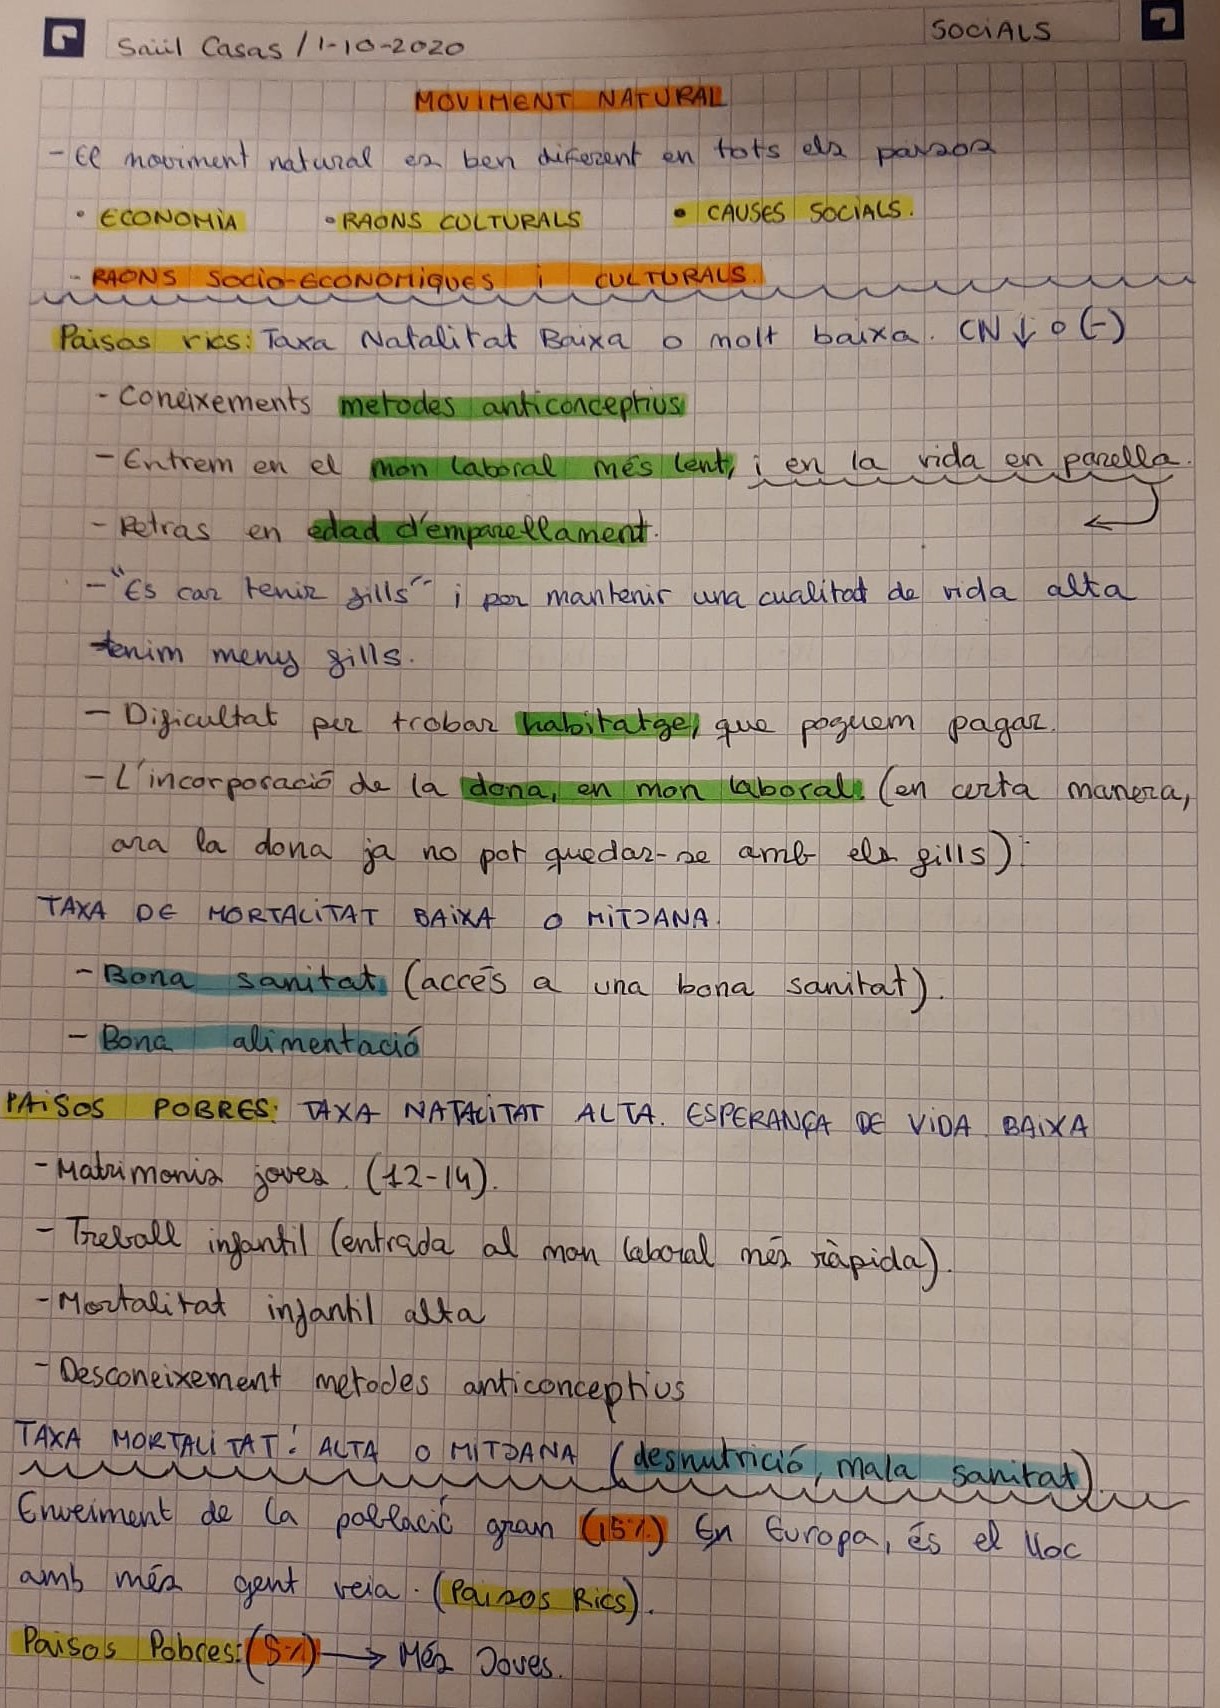 Saül Casas / 1-10-2020
SOCIALS
MOVIMENT NATURAL
- El moviment natural es ben diferent en tots els països
• ECONOMIA • RAONS CULTURALS • CAUSES SOCIALS.
- RAONS SOCIO-ECONOMIQUES i CULTURALS.
Països rics: Taxa Natalitat Baixa o molt baixa. CN ↓ o (-)
- Coneixements metodes anticonceptius
- Entrem en el mon laboral més lent, i en la vida en parella.
- Retras en edad d'emparellament.
- "Es car tenir fills" i per mantenir una cualitat de vida alta
tenim meny fills.
- Dificultat per trobar habitatge, que poguem pagar.
- L'incorporació de la dona, en mon laboral. (en certa manera,
ara la dona ja no pot quedar-se amb els fills).
TAXA DE MORTALITAT BAIXA O MITJANA.
- Bona sanitat (accés a una bona sanitat).
- Bona alimentació
PAISOS POBRES: TAXA NATALITAT ALTA. ESPERANÇA DE VIDA BAIXA
- Matrimonis joves. (12-14).
- Treball infantil (entrada al mon laboral més ràpida).
- Mortalitat infantil alta
- Desconeixement metodes anticonceptius
TAXA MORTALITAT: ALTA O MITJANA (desnutrició, mala sanitat)
Enveiment de la població gran (15%) En Europa, és el lloc
amb més gent veia. (Països Rics).
Paisos Pobres: (5%) → Més Joves.